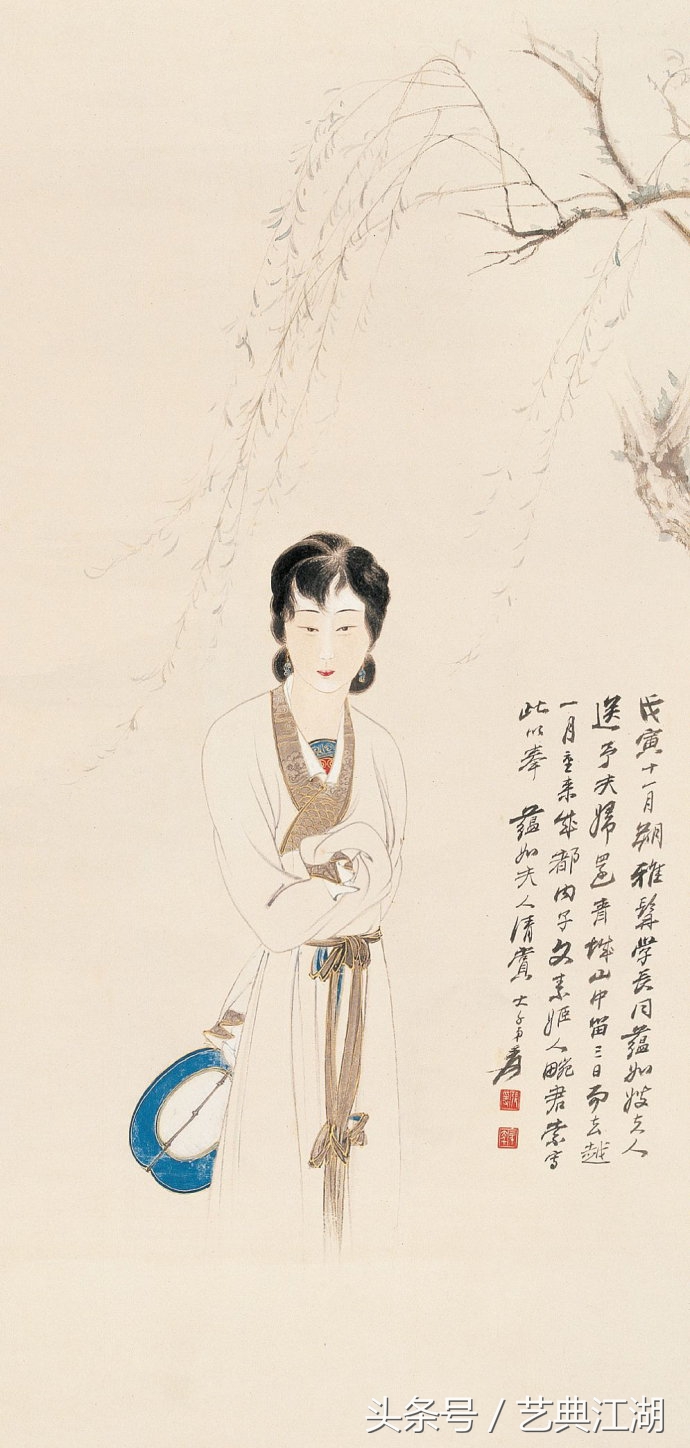 戊寅十一月朔雅髯学長同蘊如嫂夫人
送予夫婦還青城山中留三日而去越
一月重来成都内子文素姬人畹君索写
此以奉 蘊如夫人清賞 大千弟爰
头条号 / 艺典江湖